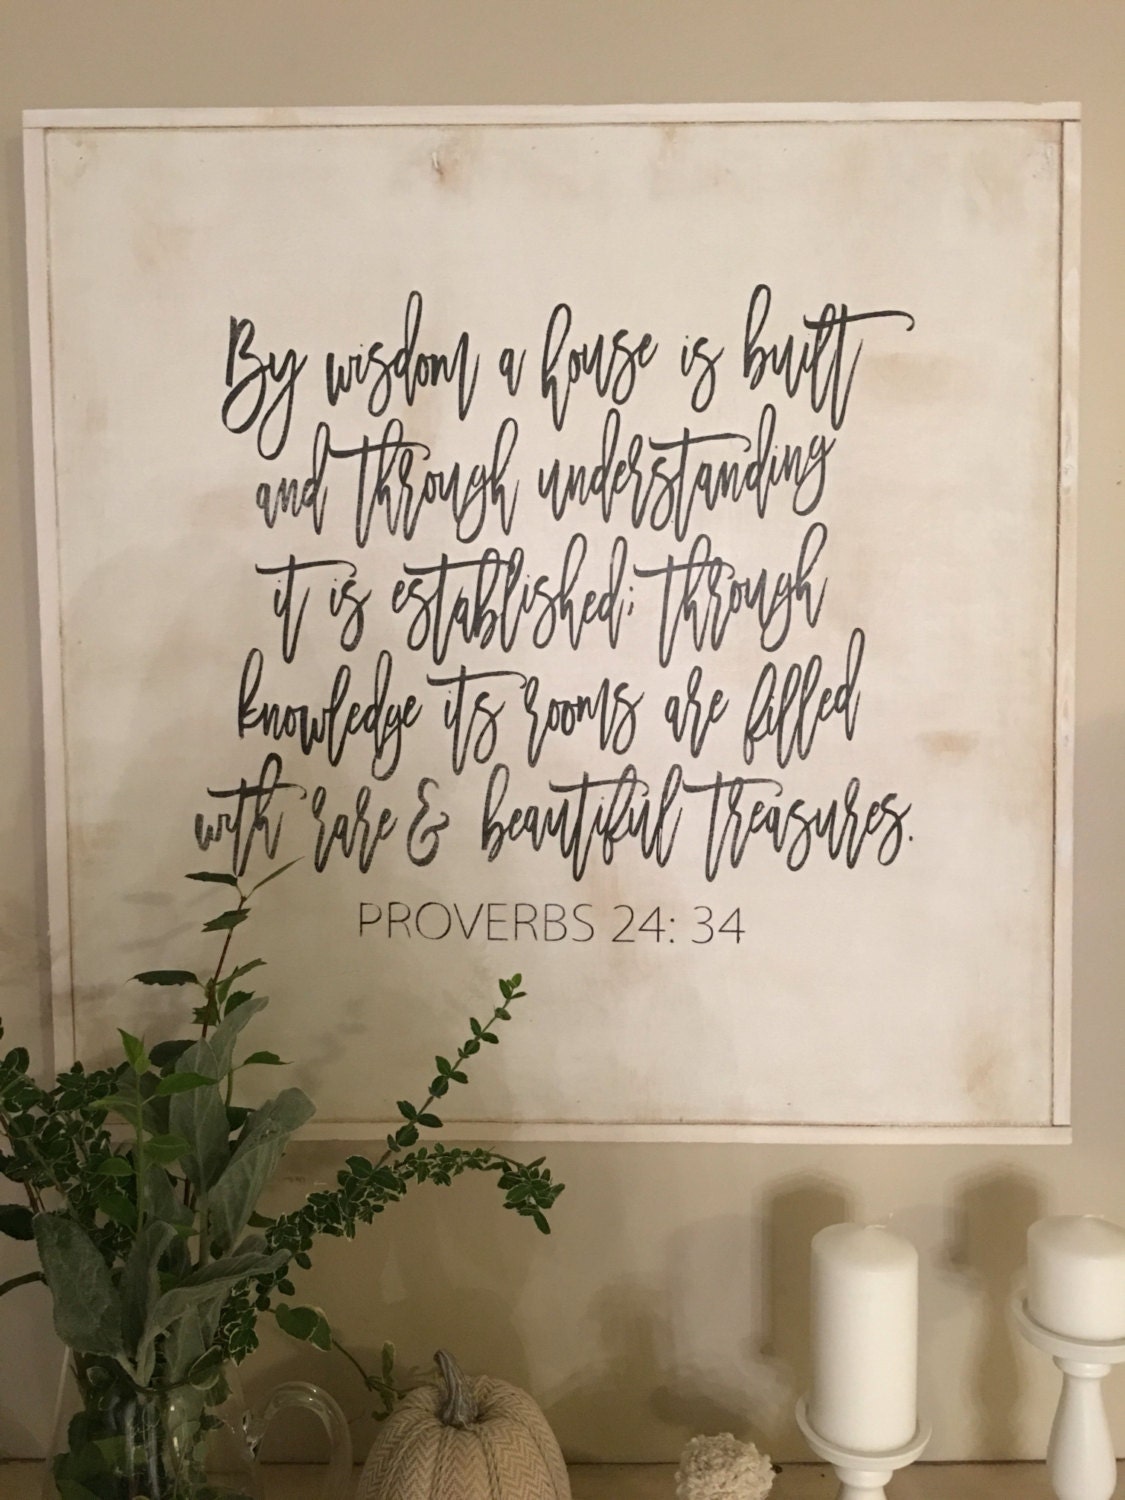 By wisdom a house is built
and through understanding
it is established; through
knowledge its rooms are filled
with rare & beautiful treasures.
PROVERBS 24: 34